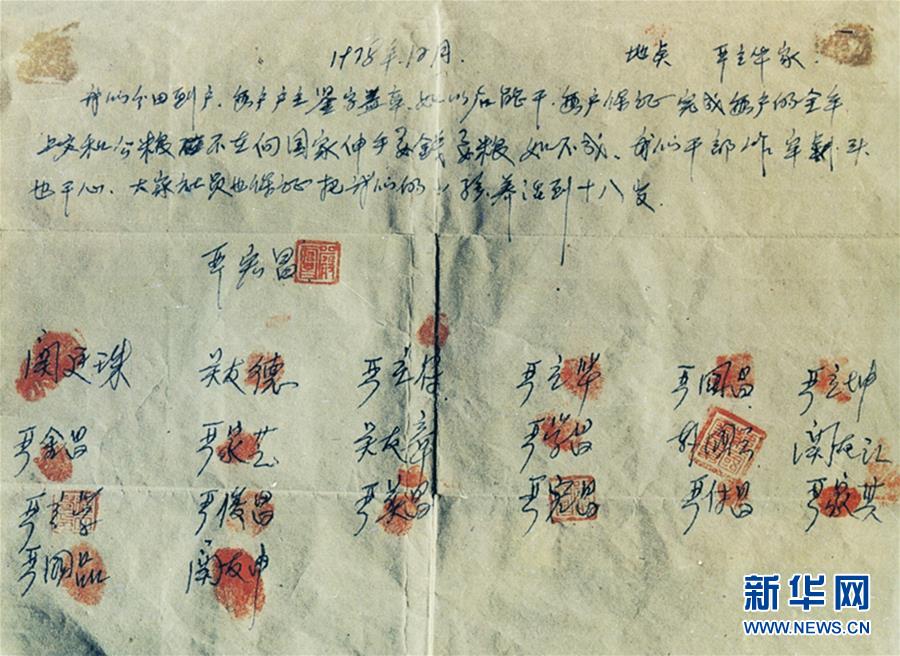 1978年12月. 地点 严立华家.
我们分田到户.每户户主签字盖章.如以后能干.每户保证完成每户的全年
上交和公粮 不在向国家伸手要钱要粮 如不成.我们干部作牢刹头
也干心.大家社员也保证把我们的小孩养活到十八岁.
严宏昌
关廷珠 关友德 严立符 严立华 严国昌 严立坤
严金昌 严家芝 关友章 严学昌 韩国云 关友江
严立学 严俊昌 严美昌 严宏昌 严付昌 严家其
严国品 关友申
新华网
WWW.NEWS.CN